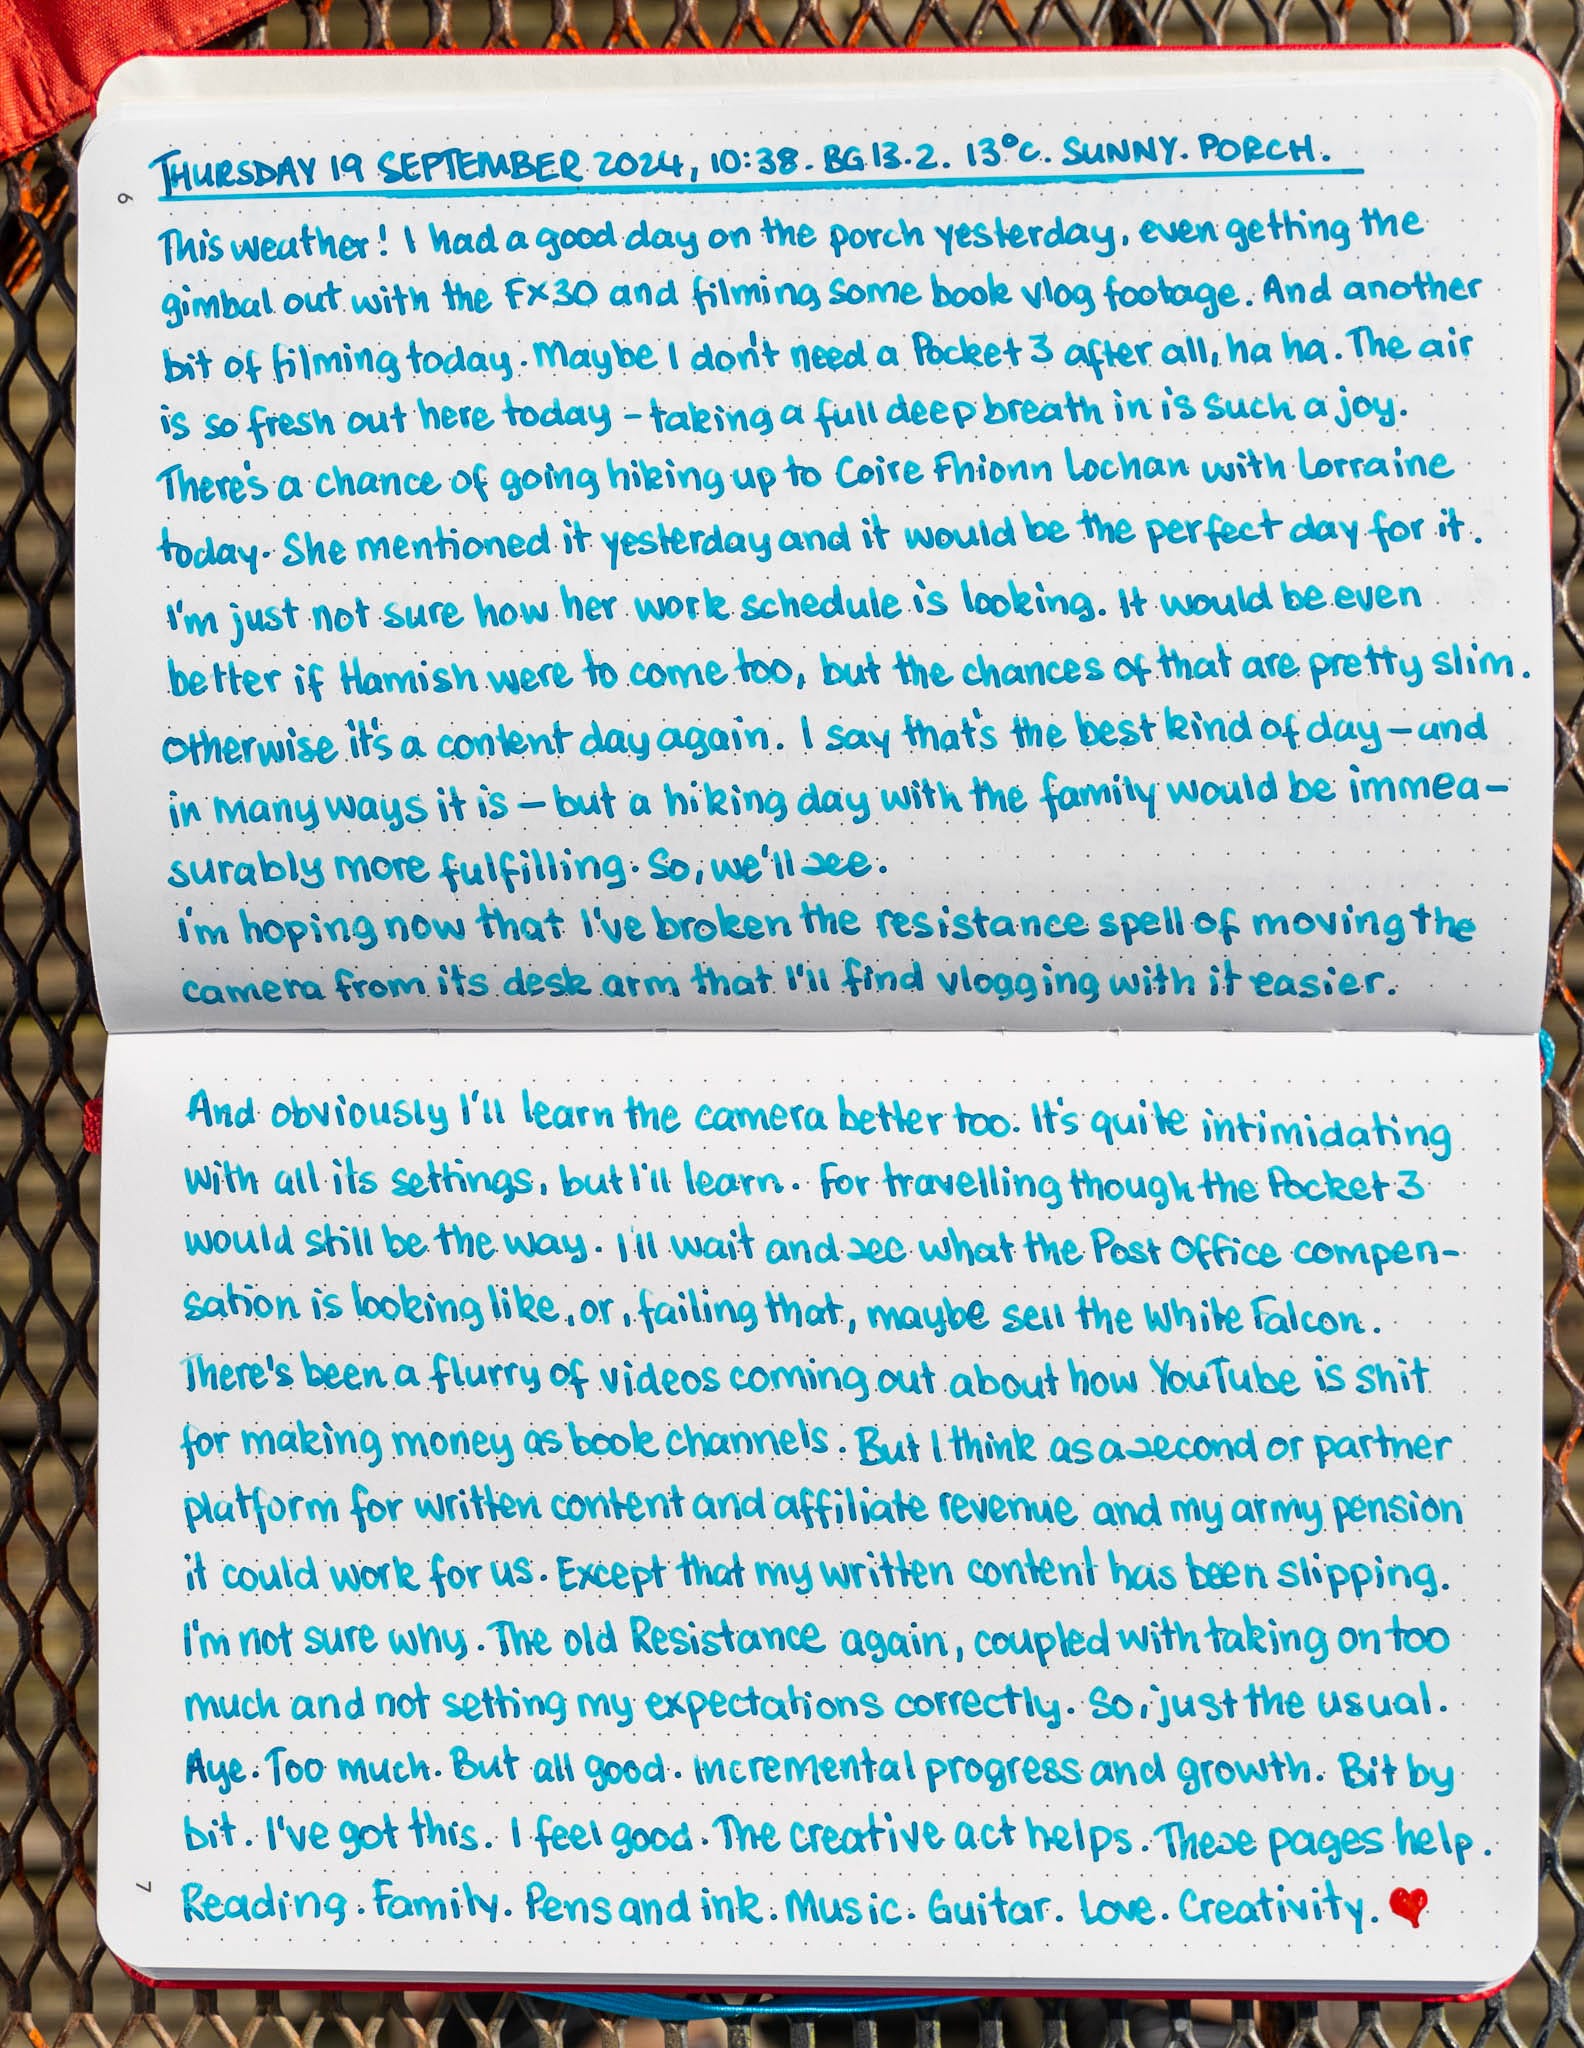 THURSDAY 19 SEPTEMBER 2024, 10:38. BG 13.2. 13°C. SUNNY. PORCH.
6
This weather! I had a good day on the porch yesterday, even getting the
gimbal out with the FX30 and filming some book vlog footage. And another
bit of filming today. Maybe I don't need a Pocket 3 after all, ha ha. The air
is so fresh out here today – taking a full deep breath in is such a joy.
There's a chance of going hiking up to Coire Fhionn Lochan with Lorraine
today. She mentioned it yesterday and it would be the perfect day for it.
I'm just not sure how her work schedule is looking. It would be even
better if Hamish were to come too, but the chances of that are pretty slim.
Otherwise it's a content day again. I say that's the best kind of day – and
in many ways it is – but a hiking day with the family would be immea-
surably more fulfilling. So, we'll see.
I'm hoping now that I've broken the resistance spell of moving the
camera from its desk arm that I'll find vlogging with it easier.
And obviously I'll learn the camera better too. It's quite intimidating
with all its settings, but I'll learn. For travelling though the Pocket 3
would still be the way. I'll wait and see what the Post Office compen-
sation is looking like, or, failing that, maybe sell the White Falcon.
There's been a flurry of videos coming out about how YouTube is shit
for making money as book channels. But I think as a second or partner
platform for written content and affiliate revenue and my army pension
it could work for us. Except that my written content has been slipping.
I'm not sure why. The old Resistance again, coupled with taking on too
much and not setting my expectations correctly. So, just the usual.
Aye. Too much. But all good. Incremental progress and growth. Bit by
bit. I've got this. I feel good. The creative act helps. These pages help.
7
Reading. Family. Pens and ink. Music. Guitar. Love. Creativity. ❤